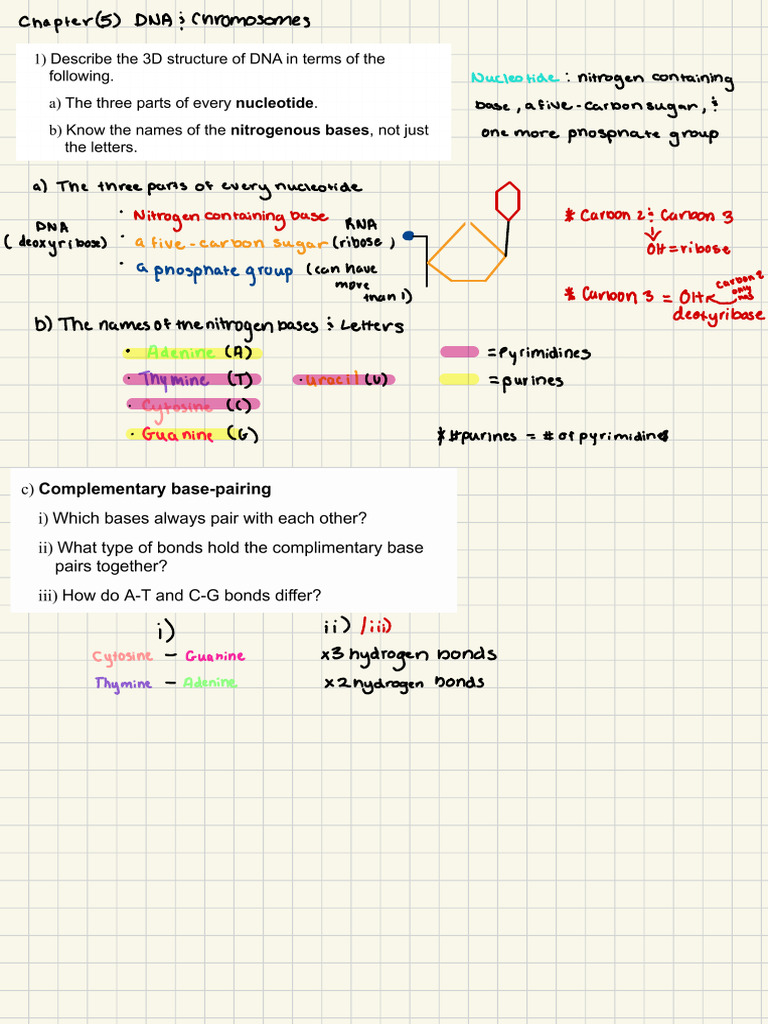 Chapter(5) DNA & Chromosomes
1) Describe the 3D structure of DNA in terms of the
following.
a) The three parts of every nucleotide.
b) Know the names of the nitrogenous bases, not just
the letters.
Nucleotide: nitrogen containing
base, a five-carbon sugar, &
one more phosphate group
a) The three parts of every nucleotide
DNA
(deoxyribose)
• Nitrogen containing base
• a five-carbon sugar
• a phosphate group (can have
more
than 1)
RNA
(ribose)
* Carbon 2 & Carbon 3
OH = ribose
* Carbon 3 = OH
carbon 2
only
has
deoxyribase
b) The names of the nitrogen bases & Letters
• Adenine (A)
• Thymine (T)
• Uracil (U)
• Cytosine (C)
• Guanine (G)
= Pyrimidines
= purines
* #purines = # of pyrimidines
c) Complementary base-pairing
i) Which bases always pair with each other?
ii) What type of bonds hold the complimentary base
pairs together?
iii) How do A-T and C-G bonds differ?
i)
Cytosine – Guanine
Thymine – Adenine
ii) /iii)
x3 hydrogen bonds
x2 hydrogen bonds